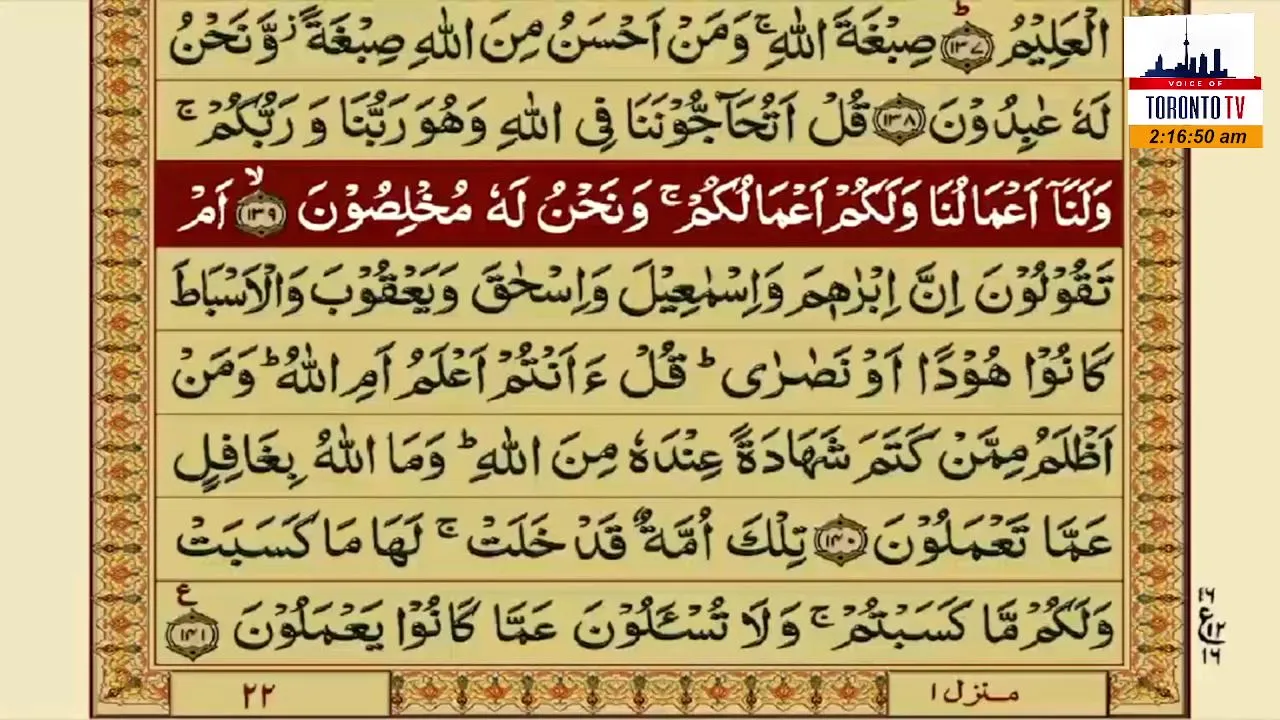 الْعَلِيْمُ ﴿۱۳۷﴾ؕ صِبْغَةَ اللّٰهِ ۚ وَمَنْ اَحْسَنُ مِنَ اللّٰهِ صِبْغَةً ۫ وَّنَحْنُ
لَهٗ عٰبِدُوْنَ ﴿۱۳۸﴾ قُلْ اَتُحَآجُّوْنَنَا فِی اللّٰهِ وَهُوَ رَبُّنَا وَ رَبُّكُمْ ۚ
وَلَنَاۤ اَعْمَالُنَا وَلَكُمْ اَعْمَالُكُمْ ۚ وَنَحْنُ لَهٗ مُخْلِصُوْنَ ﴿۱۳۹﴾ۙ اَمْ
تَقُوْلُوْنَ اِنَّ اِبْرٰهٖمَ وَاِسْمٰعِيْلَ وَاِسْحٰقَ وَيَعْقُوْبَ وَالْاَسْبَاطَ
كَانُوْا هُوْدًا اَوْ نَصٰرٰی ؕ قُلْ ءَاَنْتُمْ اَعْلَمُ اَمِ اللّٰهُ ؕ وَمَنْ
اَظْلَمُ مِمَّنْ كَتَمَ شَهَادَةً عِنْدَهٗ مِنَ اللّٰهِ ؕ وَمَا اللّٰهُ بِغَافِلٍ
عَمَّا تَعْمَلُوْنَ ﴿۱۴۰﴾ تِلْكَ اُمَّةٌ قَدْ خَلَتْ ۚ لَهَا مَا كَسَبَتْ
وَلَكُمْ مَّا كَسَبْتُمْ ۚ وَلَا تُسْـَٔلُوْنَ عَمَّا كَانُوْا يَعْمَلُوْنَ ﴿۱۴۱﴾ ع
ع
۱۲
۱۶
۱۶
منزل ۱
۲۲
VOICE OF
TORONTO TV
2:16:50 am